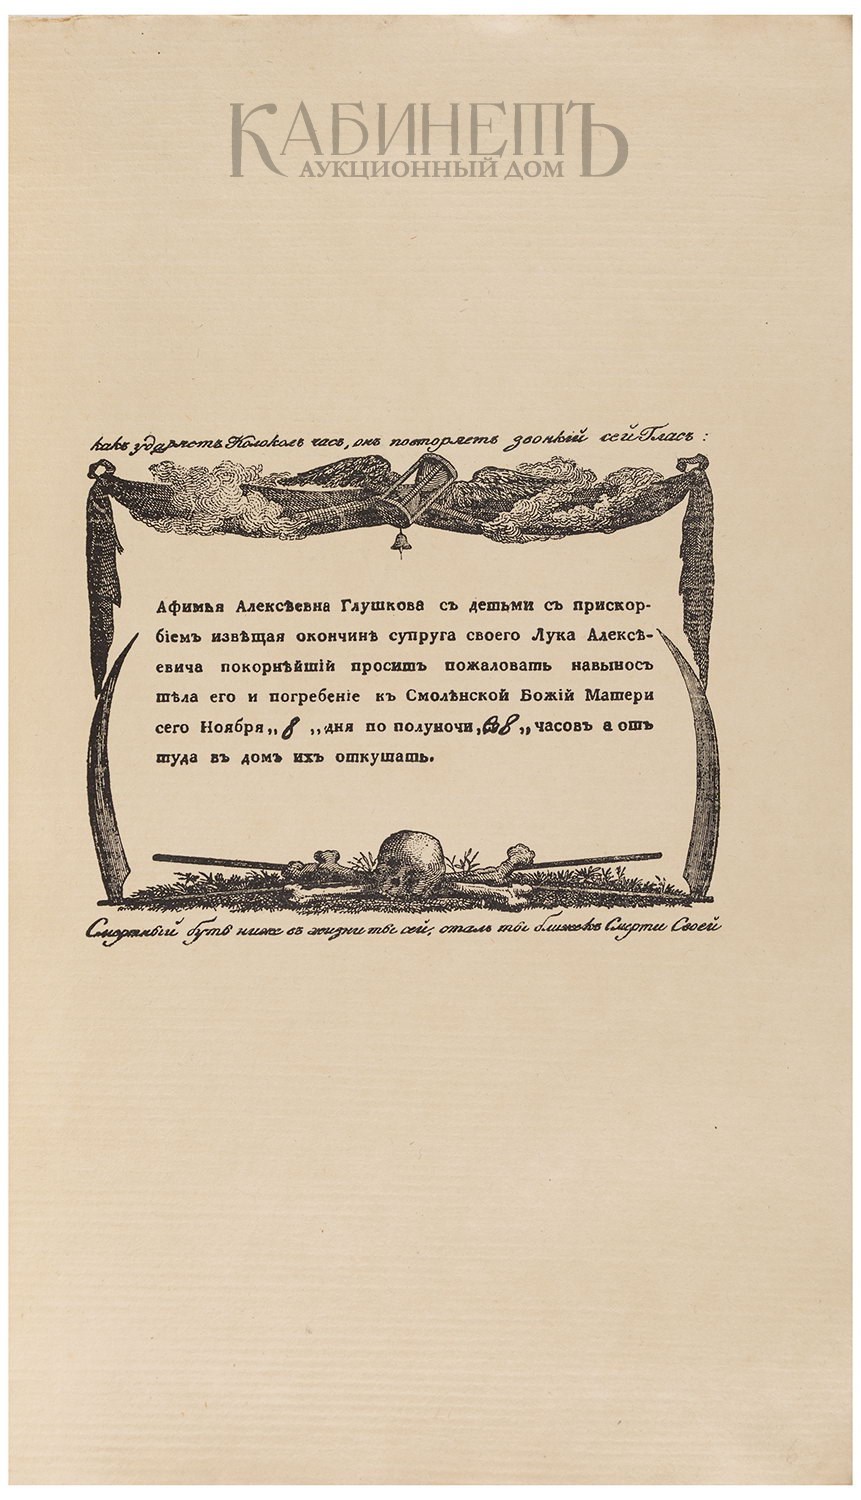 КАБИНЕТЪ
АУКЦИОННЫЙ ДОМ
какъ ударяетъ Колоколъ часъ, онъ повторяетъ звонкій сей Гласъ:
Афимья Алексѣевна Глушкова съ детьми съ прискор-
біемъ извѣщая окончинѣ супруга своего Лука Алексѣ-
евича покорнѣйшій проситъ пожаловать навыносъ
тѣла его и погребеніе къ Смолѣнской Божій Матери
сего Ноября „ 8 „ дня по полуночи „ въ 8 „ часовъ а отъ
туда въ домъ ихъ откушать.
Смертный буть ниже въ жизни ты сей, сталъ ты ближекъ Смерти Своей